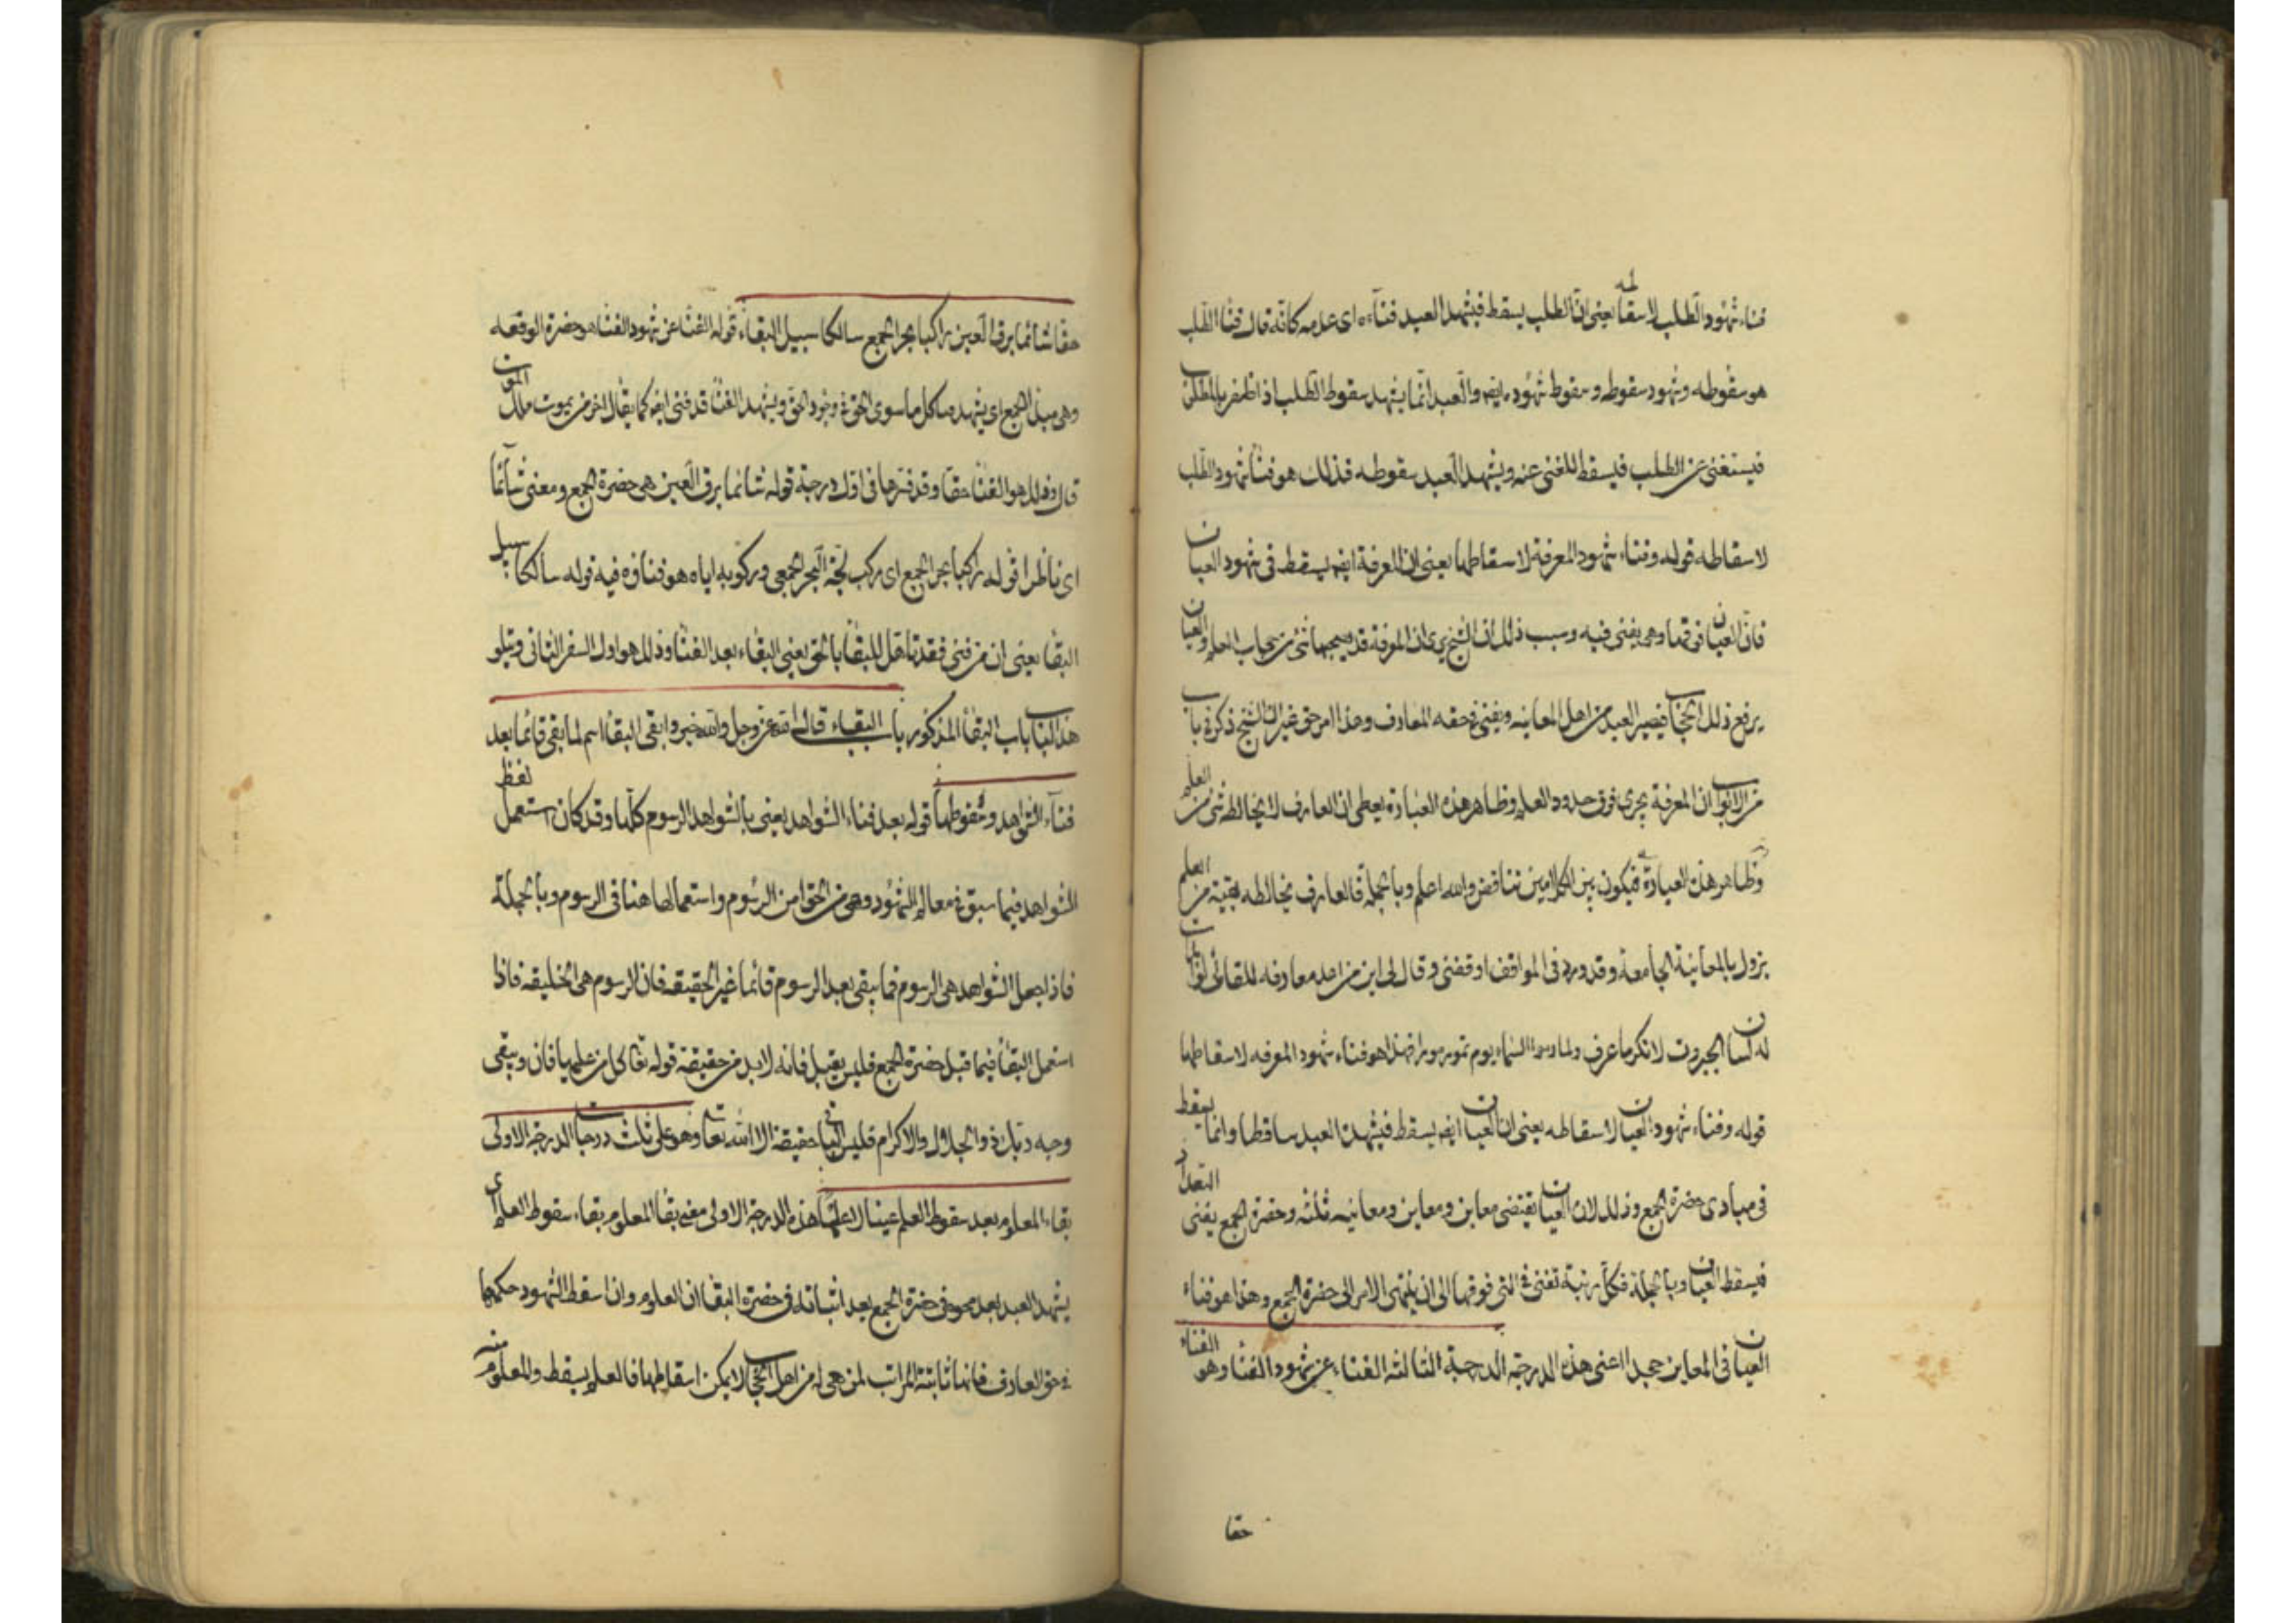 فناء شهود الطلب لاسقاطه يعنى انّ الطلب يسقط فيشهد العبد فناءه اى عدمه كانّه قال فناء الطلب
هو سقوطه وشهود سقوطه وسقوط شهوده ايضا والعبد انّما يشهد سقوط الطلب اذا ظفر بالمطلوب
فيستغنى عن الطلب فيسقط للغنى عنه ويشهد العبد سقوطه فذلك هو فناء شهود الطلب
لاسقاطه قوله وفناء شهود المعرفة لاسقاطها يعنى ان المعرفة ايضا يسقط فى شهود العيان
فانّ العيان فوقها وهى يفنى فيه وسبب ذلك ان الشيخ يرى ان المعرفة قد يصحبها شئ من حجاب العلم والعيان
يرفع ذلك الحجاب فيصير العبد من اهل المعاينه ويفنى فى حقه المعارف وهذا امر حق غير ان الشيخ ذكر فى باب
من الابواب ان المعرفة يجرى فوق حدود العلم وظاهر هذه العبارة يعطى ان العارف لا يخالطه شئ من العلم
وظاهر هذه العبارة فيكون بين الكلامين تناقض والله اعلم وبالجملة فالعارف يخالطه بقية من العلم
يزول بالمعاينة الجامعة وقد ورد فى المواقف اوقفنى وقال لى اين من اعد معارفه للقائى لو ابديت
له لسان الجبروت لانكر ما عرف ولمار مور السماء يوم تمور مورا فهذا هو فناء شهود المعرفه لاسقاطها
قوله وفناء شهود العيان لاسقاطه يعنى ان العيان ايضا يسقط فيشهد العبد ساقطا وانما يسقط
فى مبادى حضرة الجمع وذلك لان العيان يقتضى معاين ومعاين ومعاينه ثلثه وحضرة الجمع يفنى التعداد
فيسقط العيان وبالجملة فكل رتبة تفنى فى التى فوقها الى ان ينتهى الامر الى حضرة الجمع وهذا هو فناء
العيان فى المعاين جدا اعنى هذه الدرجة الدرجة الثالثة الفناء عن شهود الفناء وهو الفناء
حقا
حقّا شائما برق العين راكبا بحر الجمع سالكا سبيل البقاء قوله الفنا عن شهود الفنا هو حضرة الوقفه
وهى مبدا الجمع اى يشهد محا كل ما سوى الحق فى وجود الحق ويشهد الفنا قد فنى ايضا كما يقال اخر من يموت ملك الموت
قال وذلك هو الفنا حقا وقد فسرها فى اول درجة قوله شائما برق العين هى حضرة الجمع ومعنى شائما
اى ناظرا قوله راكبا بحر الجمع اى يركب لجّة البحر الجمعى وركوبه اياه هو فناؤه فيه قوله سالكا سبيل
البقا يعنى ان من فنى فقد تاهل للبقا بالحق يعنى البقاء بعد الفنا وذلك هو اول السفر الثانى ويتلو
هذا الباب باب البقا المذكور باب البقاء قال الله عز وجل والله خير وابقى البقا اسم لما بقى قائما بعد
فناء الشواهد وسقوطها قوله بعد فناء الشواهد يعنى بالشواهد الرسوم كلها وقد كان استعمل لفظ
الشواهد فيما سبق فى معالم الشهود وهى من الحق امن الرسوم واستعمالها هنا فى الرسوم وبالجملة
فاذا جعل الشواهد هى الرسوم فما يبقى بعد الرسوم قائما غير الحقيقه فان الرسوم هى الخليقه فاذا
استعمل البقا فيما قبل حضرة الجمع فليس يقبل فانه لابد من حقيقة قوله تعا كل من عليها فان ويبقى
وجه ربك ذو الجلال والاكرام فليس الباقى حقيقة الا الله تعا وهو على ثلث درجات الدرجة الاولى
بقاء المعلوم بعد سقوط العلم عينا لا علما هذه الدرجة الاولى معنى بقا المعلوم بقاء سقوط العلم اى
يشهد العبد بعد محوه فى حضرة الجمع بعد اثباته فى حضرة البقا ان العلوم وان اسقط الشهود حكمها
فى حق العارف فانها ثابتة المراتب لمن هى له من اهل الحجاب لا يمكن اسقاطها فالعلم يسقط والمعلوم منه